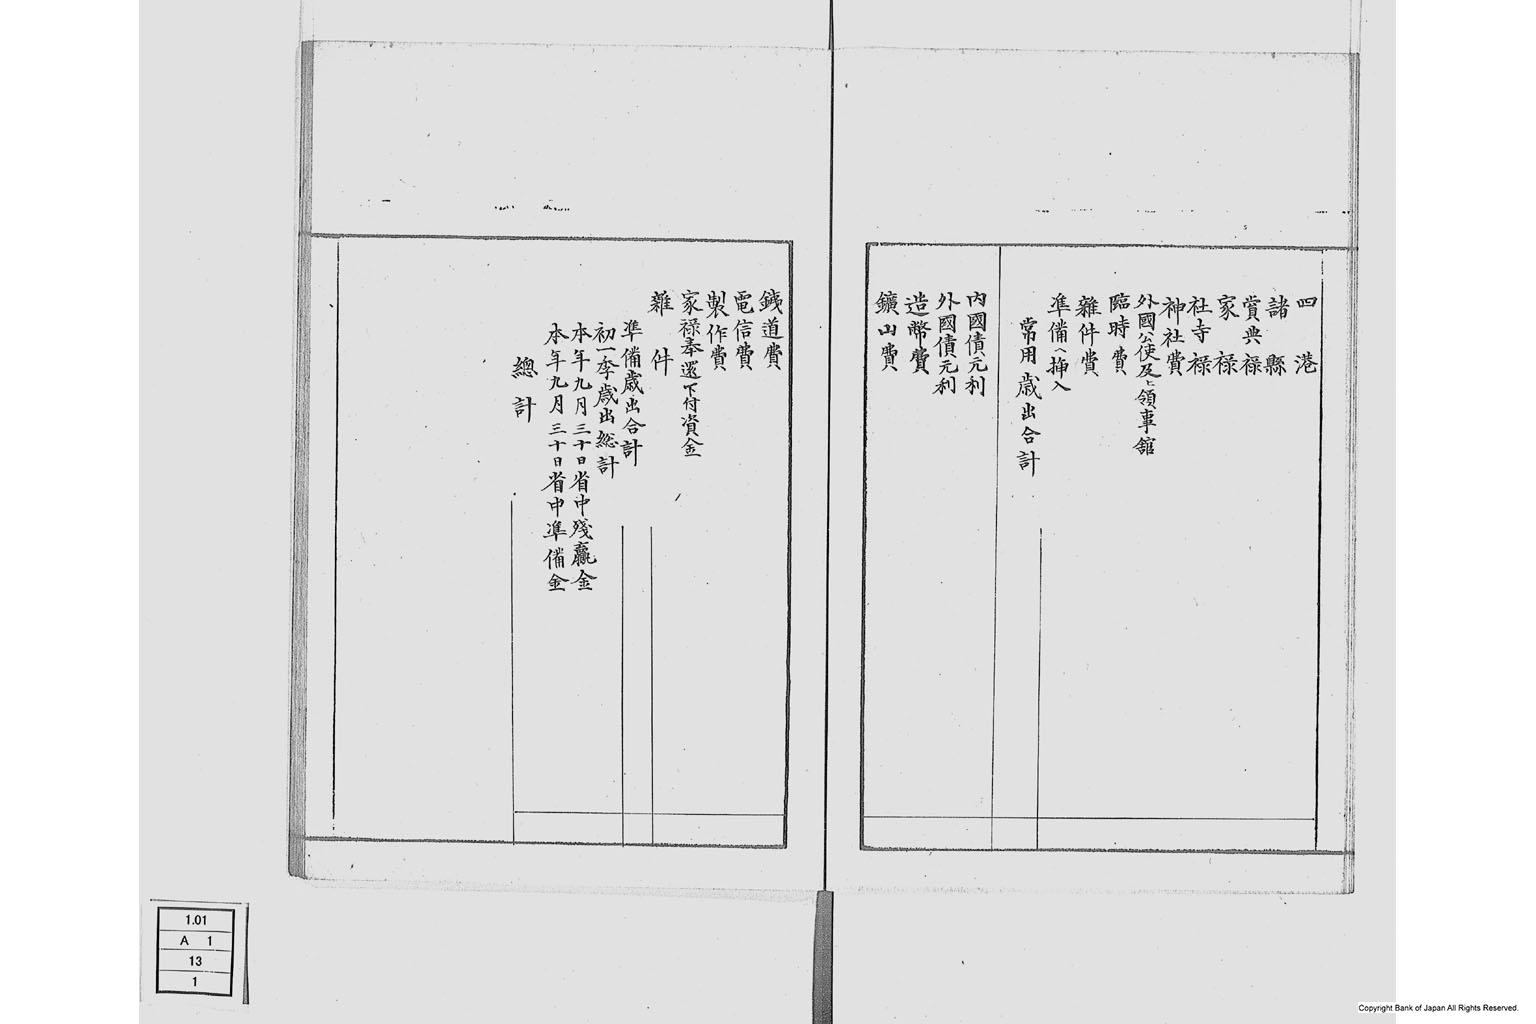 四港
諸縣
賞典禄
家禄
社寺禄
神社費
外國公使及ヒ領事舘
臨時費
雜件費
凖備ヘ挿入
常用歳出合計
內國債元利
外國債元利
造幣費
鑛山費
鐵道費
電信費
製作費
家禄奉還下付資金
雜件
凖備歳出合計
初一季歳出総計
本年九月三十日省中殘贏金
本年九月三十日省中凖備金
總計
1.01
A 1
13
1
Copyright Bank of Japan All Rights Reserved.